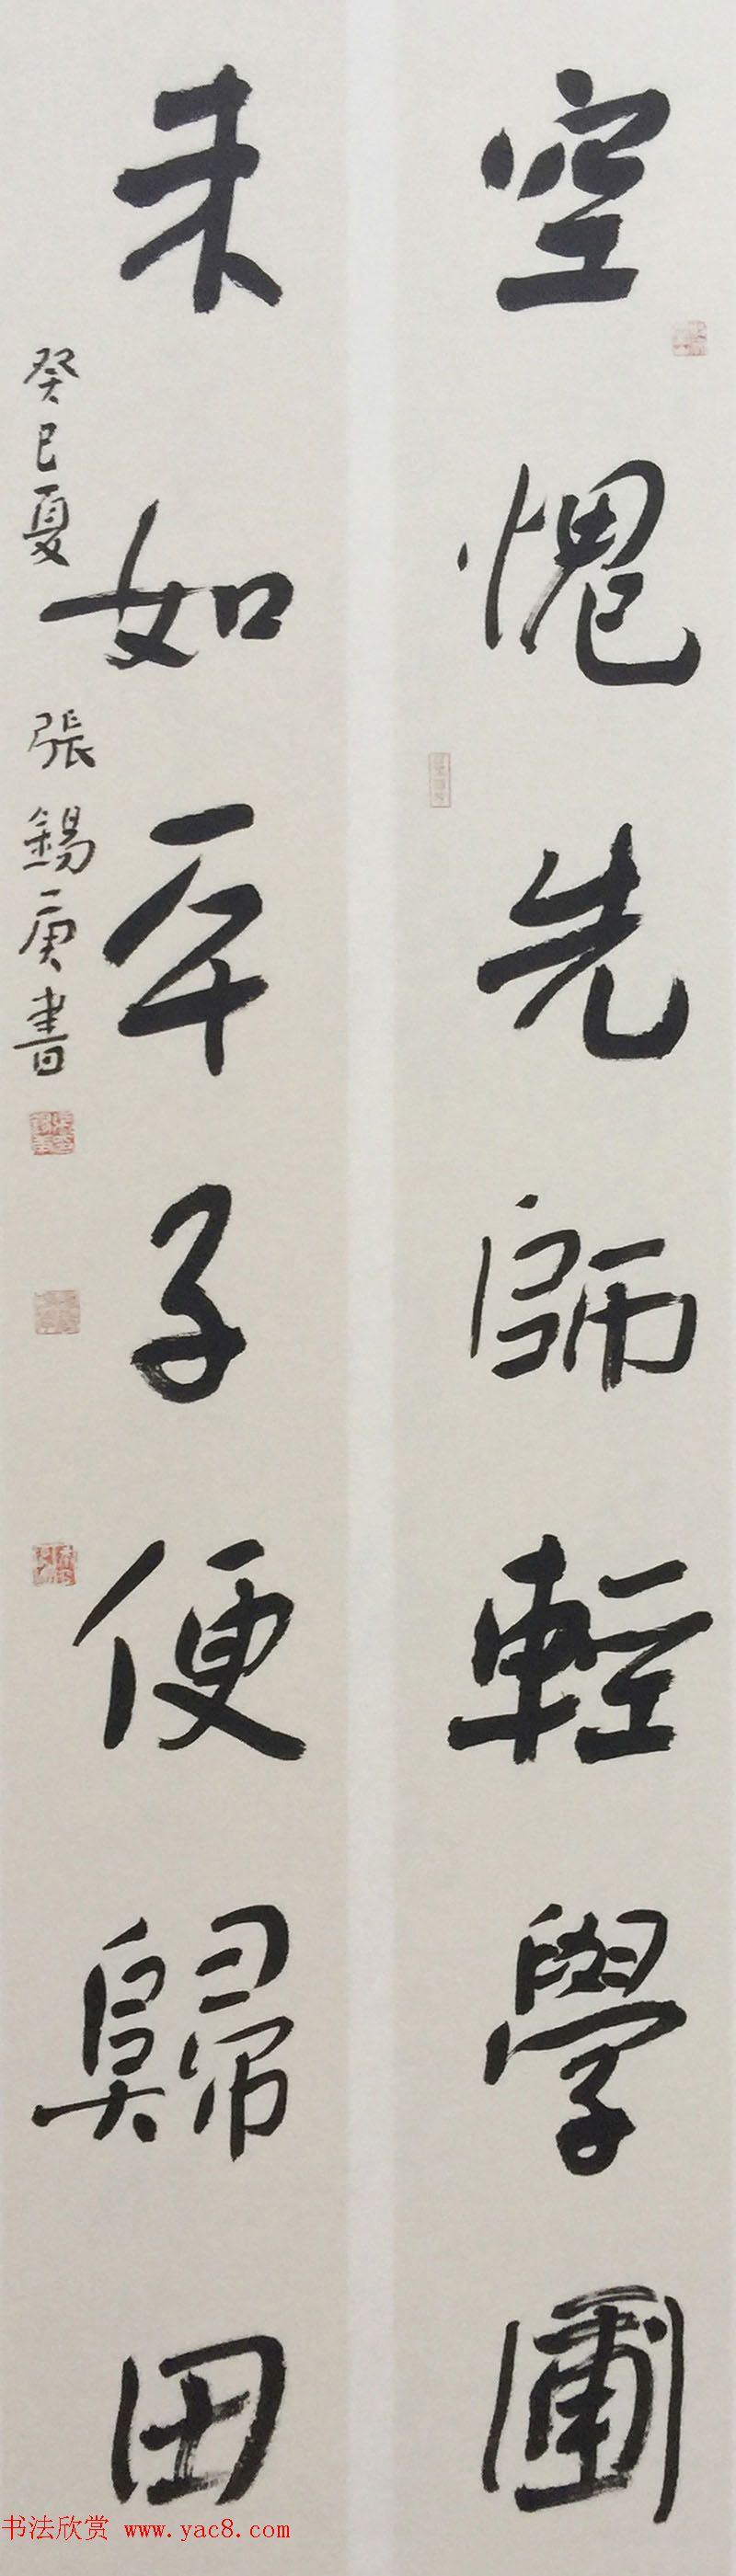 空愧先師輕學圃
未如平子便歸田
癸巳夏 張錫庚書
书法欣赏 www.yac8.com